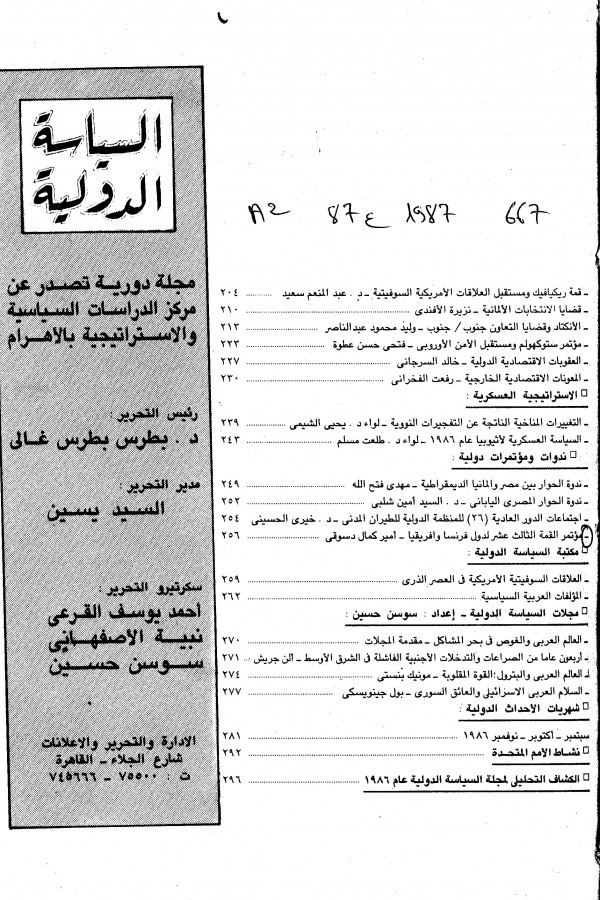 A2 87 ع 1987 667
ـ قمة ريكيافيك ومستقبل العلاقات الأمريكية السوفيتية ـ د . عبد المنعم سعيد ........ ٢٠٤
ـ قضايا الانتخابات الألمانية ـ نزيرة الأفندى ........ ٢١٠
ـ الأنكتاد وقضايا التعاون جنوب / جنوب ـ وليد محمود عبدالناصر ........ ٢١٣
ـ مؤتمر ستوكهولم ومستقبل الأمن الأوروبى ـ فتحى حسن عطوة ........ ٢٢٣
ـ العقوبات الاقتصادية الدولية ـ خالد السرجانى ........ ٢٢٧
ـ المعونات الاقتصادية الخارجية ـ رفعت الفخرانى ........ ٢٣٠
□ الاستراتيجية العسكرية :
ـ التغييرات المناخية الناتجة عن التفجيرات النووية ـ لواء د . يحيى الشيمى ........ ٢٣٩
ـ السياسة العسكرية لأثيوبيا عام ١٩٨٦ ـ لواء د . طلعت مسلم ........ ٢٤٣
□ ندوات ومؤتمرات دولية :
ـ ندوة الحوار بين مصر والمانيا الديمقراطية ـ مهدى فتح الله ........ ٢٤٩
ـ ندوة الحوار المصرى اليابانى ـ د . السيد أمين شلبى ........ ٢٥٢
ـ اجتماعات الدور العادية (٢٦) للمنظمة الدولية للطيران المدنى ـ د . خيرى الحسينى ٢٥٤
ـ مؤتمر القمة الثالث عشر لدول فرنسا وافريقيا ـ أمير كمال دسوقى ........ ٢٥٦
□ مكتبة السياسة الدولية :
ـ العلاقات السوفيتية الأمريكية فى العصر الذرى ........ ٢٥٩
ـ المؤلفات العربية السياسية ........ ٢٦٢
□ مجلات السياسة الدولية ـ إعداد : سوسن حسين :
ـ العالم العربى والغوص فى بحر المشاكل ـ مقدمة المجلات ........ ٢٧٠
ـ أربعون عاما من الصراعات والتدخلات الأجنبية الفاشلة فى الشرق الأوسط ـ آلن جريش .. ٢٧١
ـ العالم العربى والبترول : القوة المقلوبة ـ مونيك بنستى ........ ٢٧٤
ـ السلام العربى الاسرائيلى والعائق السورى ـ بول جينويسكى ........ ٢٧٧
□ شهريات الأحداث الدولية :
سبتمبر ـ أكتوبر ـ نوفمبر ١٩٨٦ ........ ٢٨١
□ نشاط الأمم المتحدة ........ ٢٩٢
□ الكشاف التحليلى لمجلة السياسة الدولية عام ١٩٨٦ ........ ٢٩٦
السياسة
الدولية
مجلة دورية تصدر عن
مركز الدراسات السياسية
والاستراتيجية بالأهرام
رئيس التحرير :
د . بطرس بطرس غالى
مدير التحرير :
السيد يسين
سكرتيرو التحرير :
أحمد يوسف القرعى
نبية الأصفهانى
سوسن حسين
الادارة والتحرير والاعلانات
شارع الجلاء ـ القاهرة
ت : ٧٥٥٠٠ ـ ٧٤٥٦٦٦